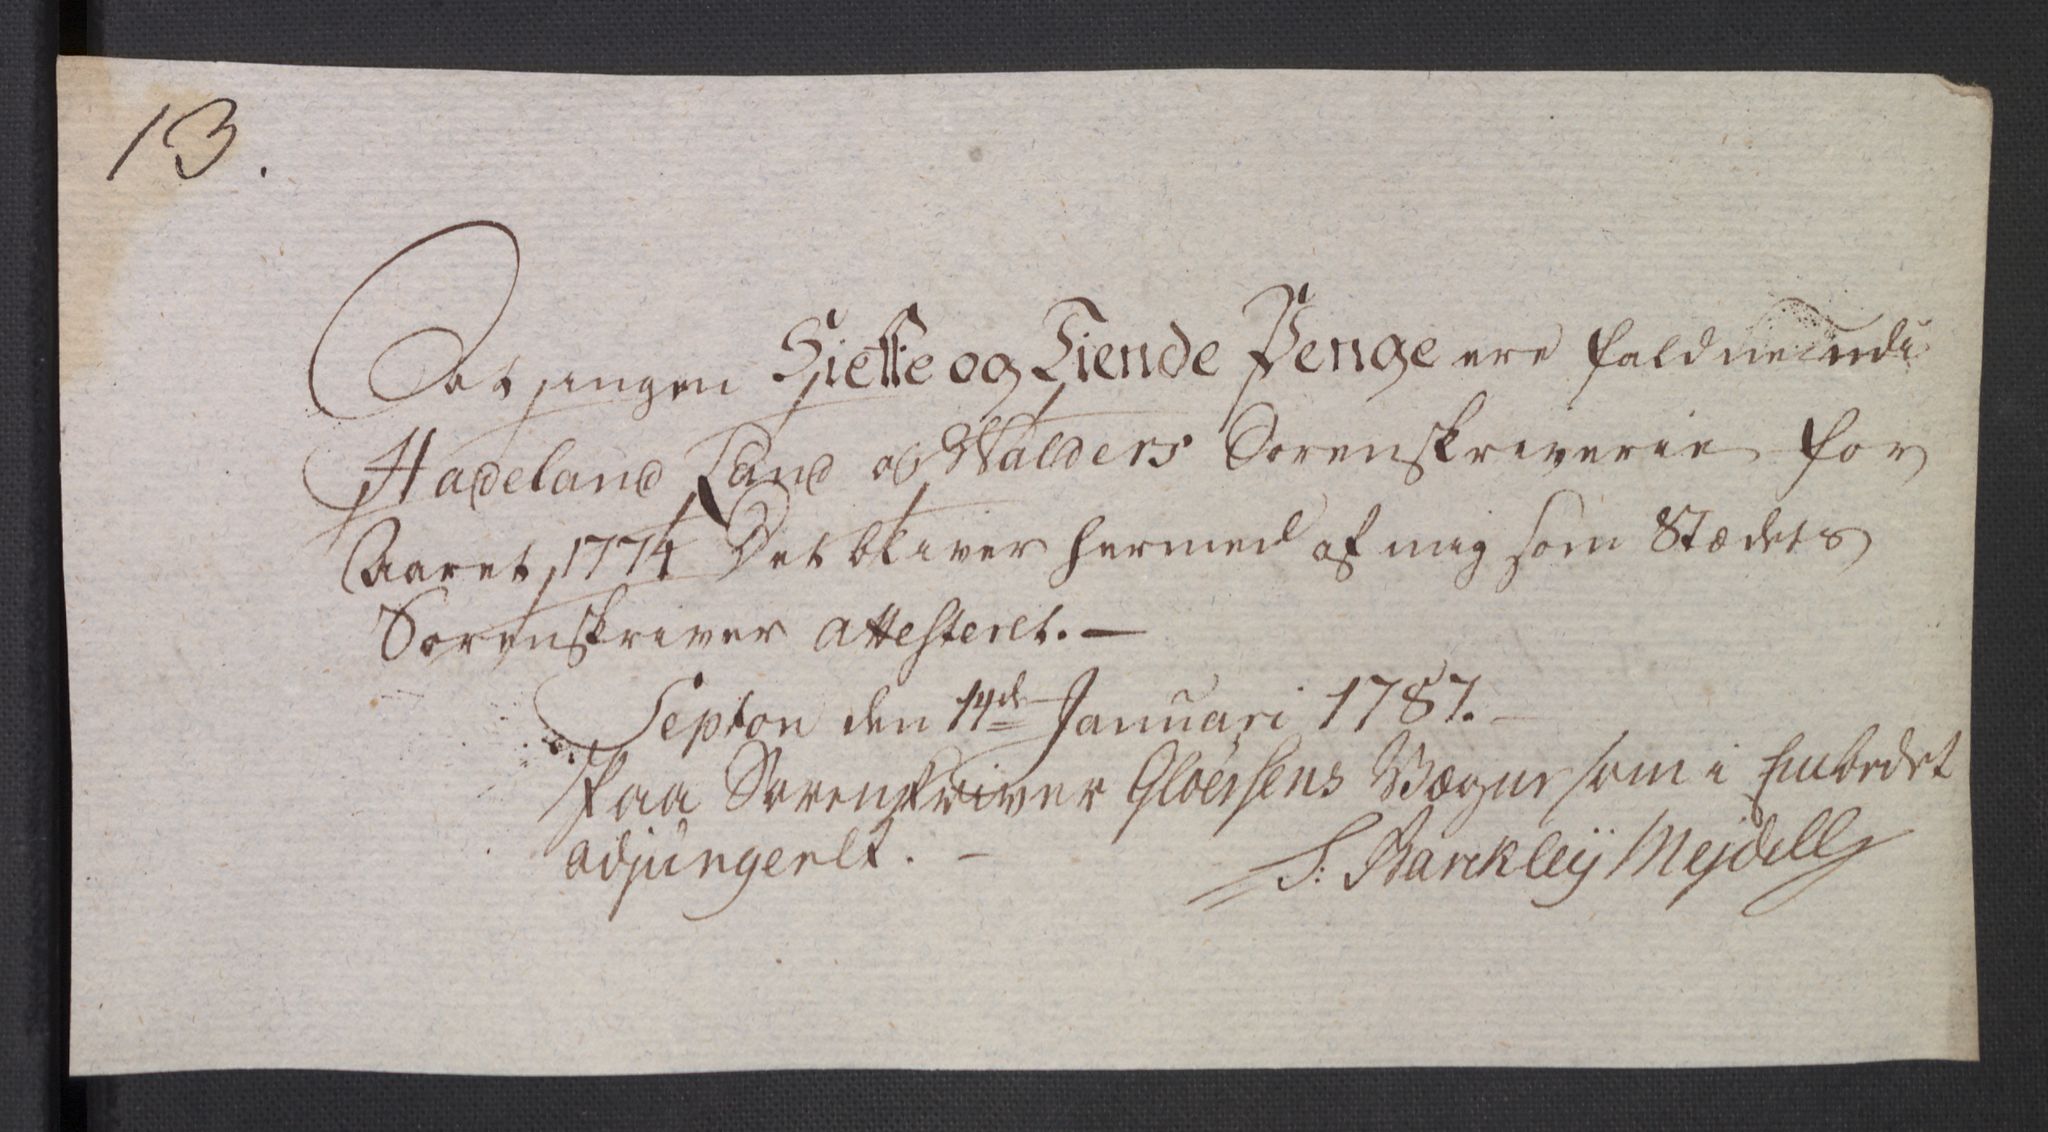 13.
At ingen Siette og Tiende Penge ere faldne udi
Hadeland Land og Walders Sorenskriverie for
Aaret 1774 Det bliver hermed af mig som Stædets
Sorenskriver attesteret. —
Septon den 14de Januari 1787. —
Paa Sorenskriver Gloersens Vægne som i Embedet
adjungerlt. —
S: Barckleij Mejdell